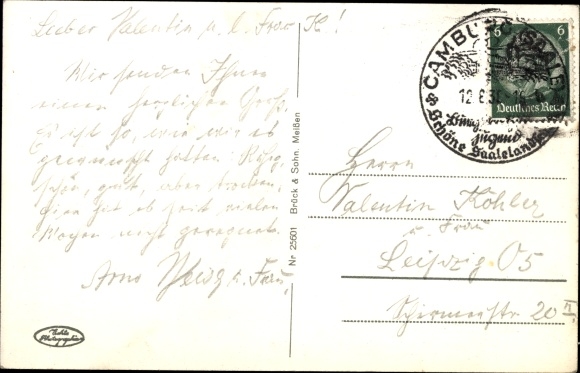 Lieber Valentin u. l. Frau K!
Wir senden Ihnen
einen herzlichen Gruß.
Es ist so, wie wir es
gewünscht hatten. Ruhig,
schön, gut, aber trocken,
hier hat es seit vielen
Wochen nicht geregnet.
Arno u. Frau.
Echte
Photographie
Nr 25601 Brück & Sohn, Meißen
CAMBURG (SAALE)
12.6.
Burg
Jugend
Schöne Saaleland
6 6
Deutsches Reich
Herrn
Valentin Köhler
u. Frau
Leipzig O5
Schirmerstr. 20 II